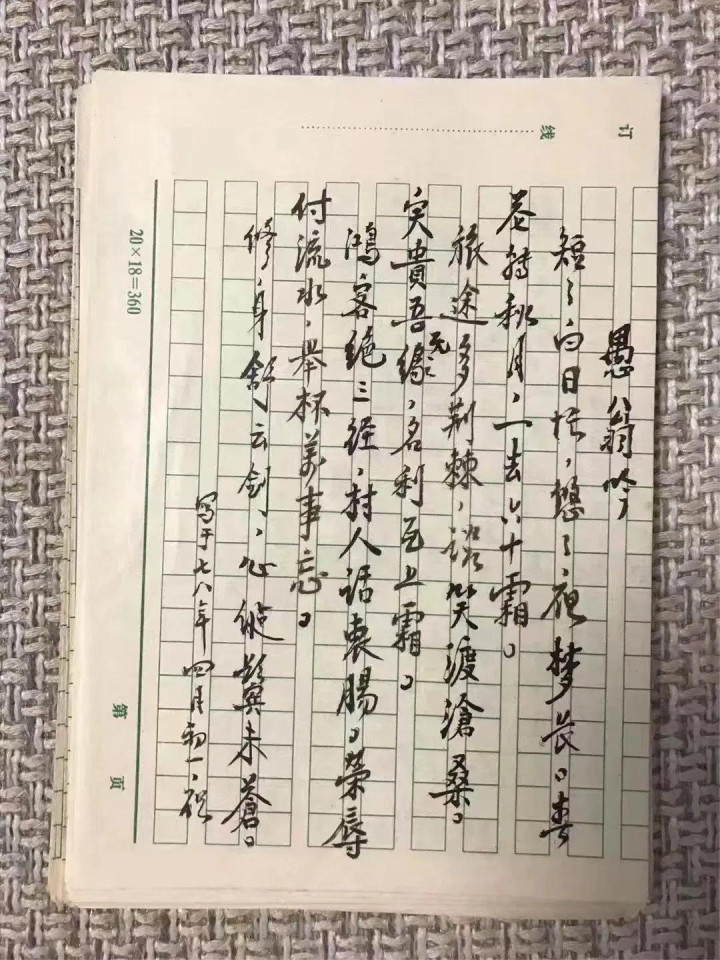 愚公翁吟
短々白日忙，悠々夜梦长。春
花转秋月，一去六十霜。
旅途多荆棘，谈笑渡沧桑。
实贵吾无缘，名利瓦上霜。
鸿客绝三径，村人话衷肠。荣辱
付流水，举杯万事忘。
修身剑，心纵鬓未苍。
写于七八年四月初一，夜
订
线
20×18=360
第 页